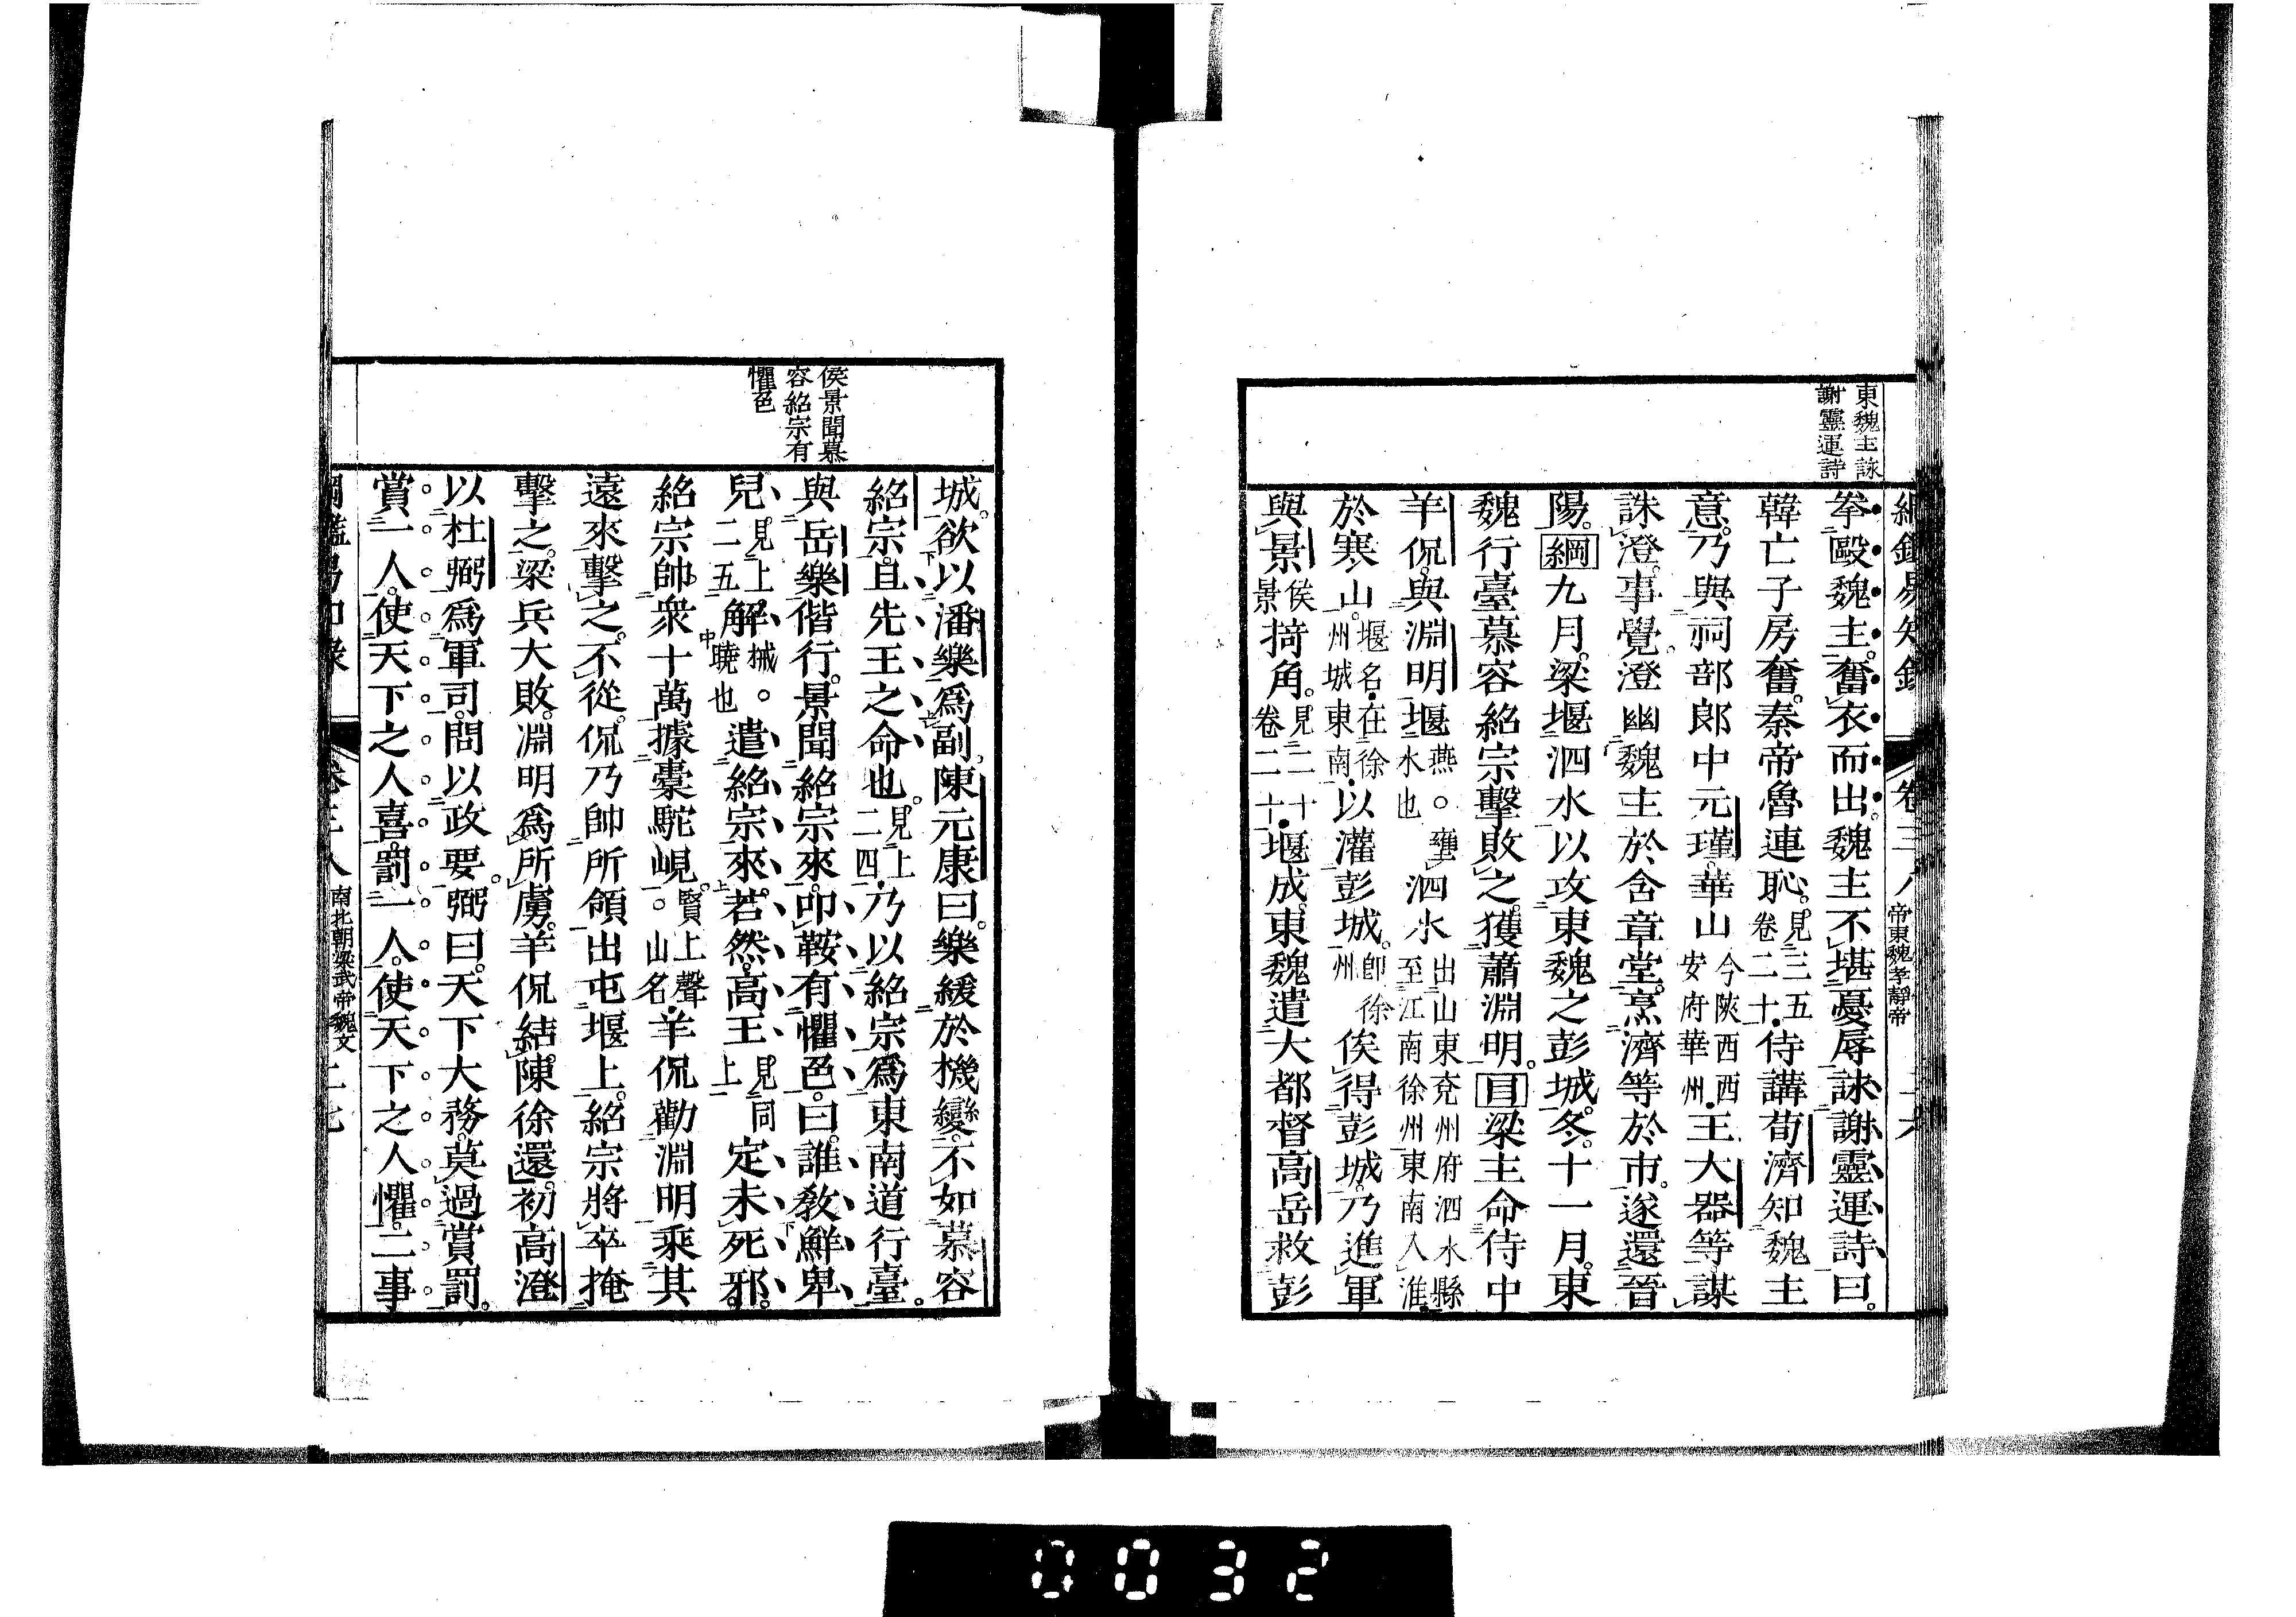 東魏主詠
謝靈運詩
拳毆魏主奮衣而出魏主不堪憂辱詠謝靈運詩曰
韓亡子房奮秦帝魯連恥見三五卷二十侍講荀濟知魏主
意乃與祠部郎中元瑾華山今陝西西安府華州王大器等謀
誅澄事覺澄幽魏主於含章堂烹濟等於市遂還晉
陽綱九月梁堰泗水以攻東魏之彭城冬十一月東
魏行臺慕容紹宗擊敗之獲蕭淵明目梁主命侍中
羊侃與淵明堰燕○壅水也泗水出山東兗州府泗水縣至江南徐州東南入淮
於寒山堰名在徐州城東南以灌彭城卽徐州俟得彭城乃進軍
與景侯景掎角見二十卷二十堰成東魏遣大都督高岳救彭
帝東魏孝靜帝
侯景聞慕
容紹宗有
懼色
城欲以潘樂爲副陳元康曰樂緩於機變不如慕容
紹宗且先王之命也見上二四乃以紹宗爲東南道行臺
與岳樂偕行景聞紹宗來叩鞍有懼色曰誰敎鮮卑
兒見上二五解械○曉也遣紹宗來若然高王見同上定未死邪
紹宗帥衆十萬據橐駝峴賢上聲○山名羊侃勸淵明乘其
遠來擊之不從侃乃帥所領出屯堰上紹宗將卒掩
擊之梁兵大敗淵明爲所虜羊侃結陳徐還初高澄
以杜弼爲軍司問以政要弼曰天下大務莫過賞罰
賞一人使天下之人喜罰一人使天下之人懼二事
南北朝梁武帝魏文
0032